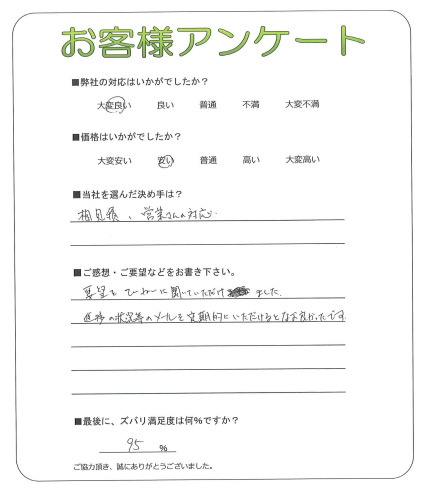 お客様アンケート
■弊社の対応はいかがでしたか？
大変良い 良い 普通 不満 大変不満
■価格はいかがでしたか？
大変安い 安い 普通 高い 大変高い
■当社を選んだ決め手は？
相見積、営業さんの対応.
■ご感想・ご要望などをお書き下さい。
要望をていねいに聞いていただけ ました.
進捗の状況等のメールを定期的にいただけるとなお良かったです.
■最後に、ズバリ満足度は何％ですか？
95 %
ご協力頂き、誠にありがとうございました。